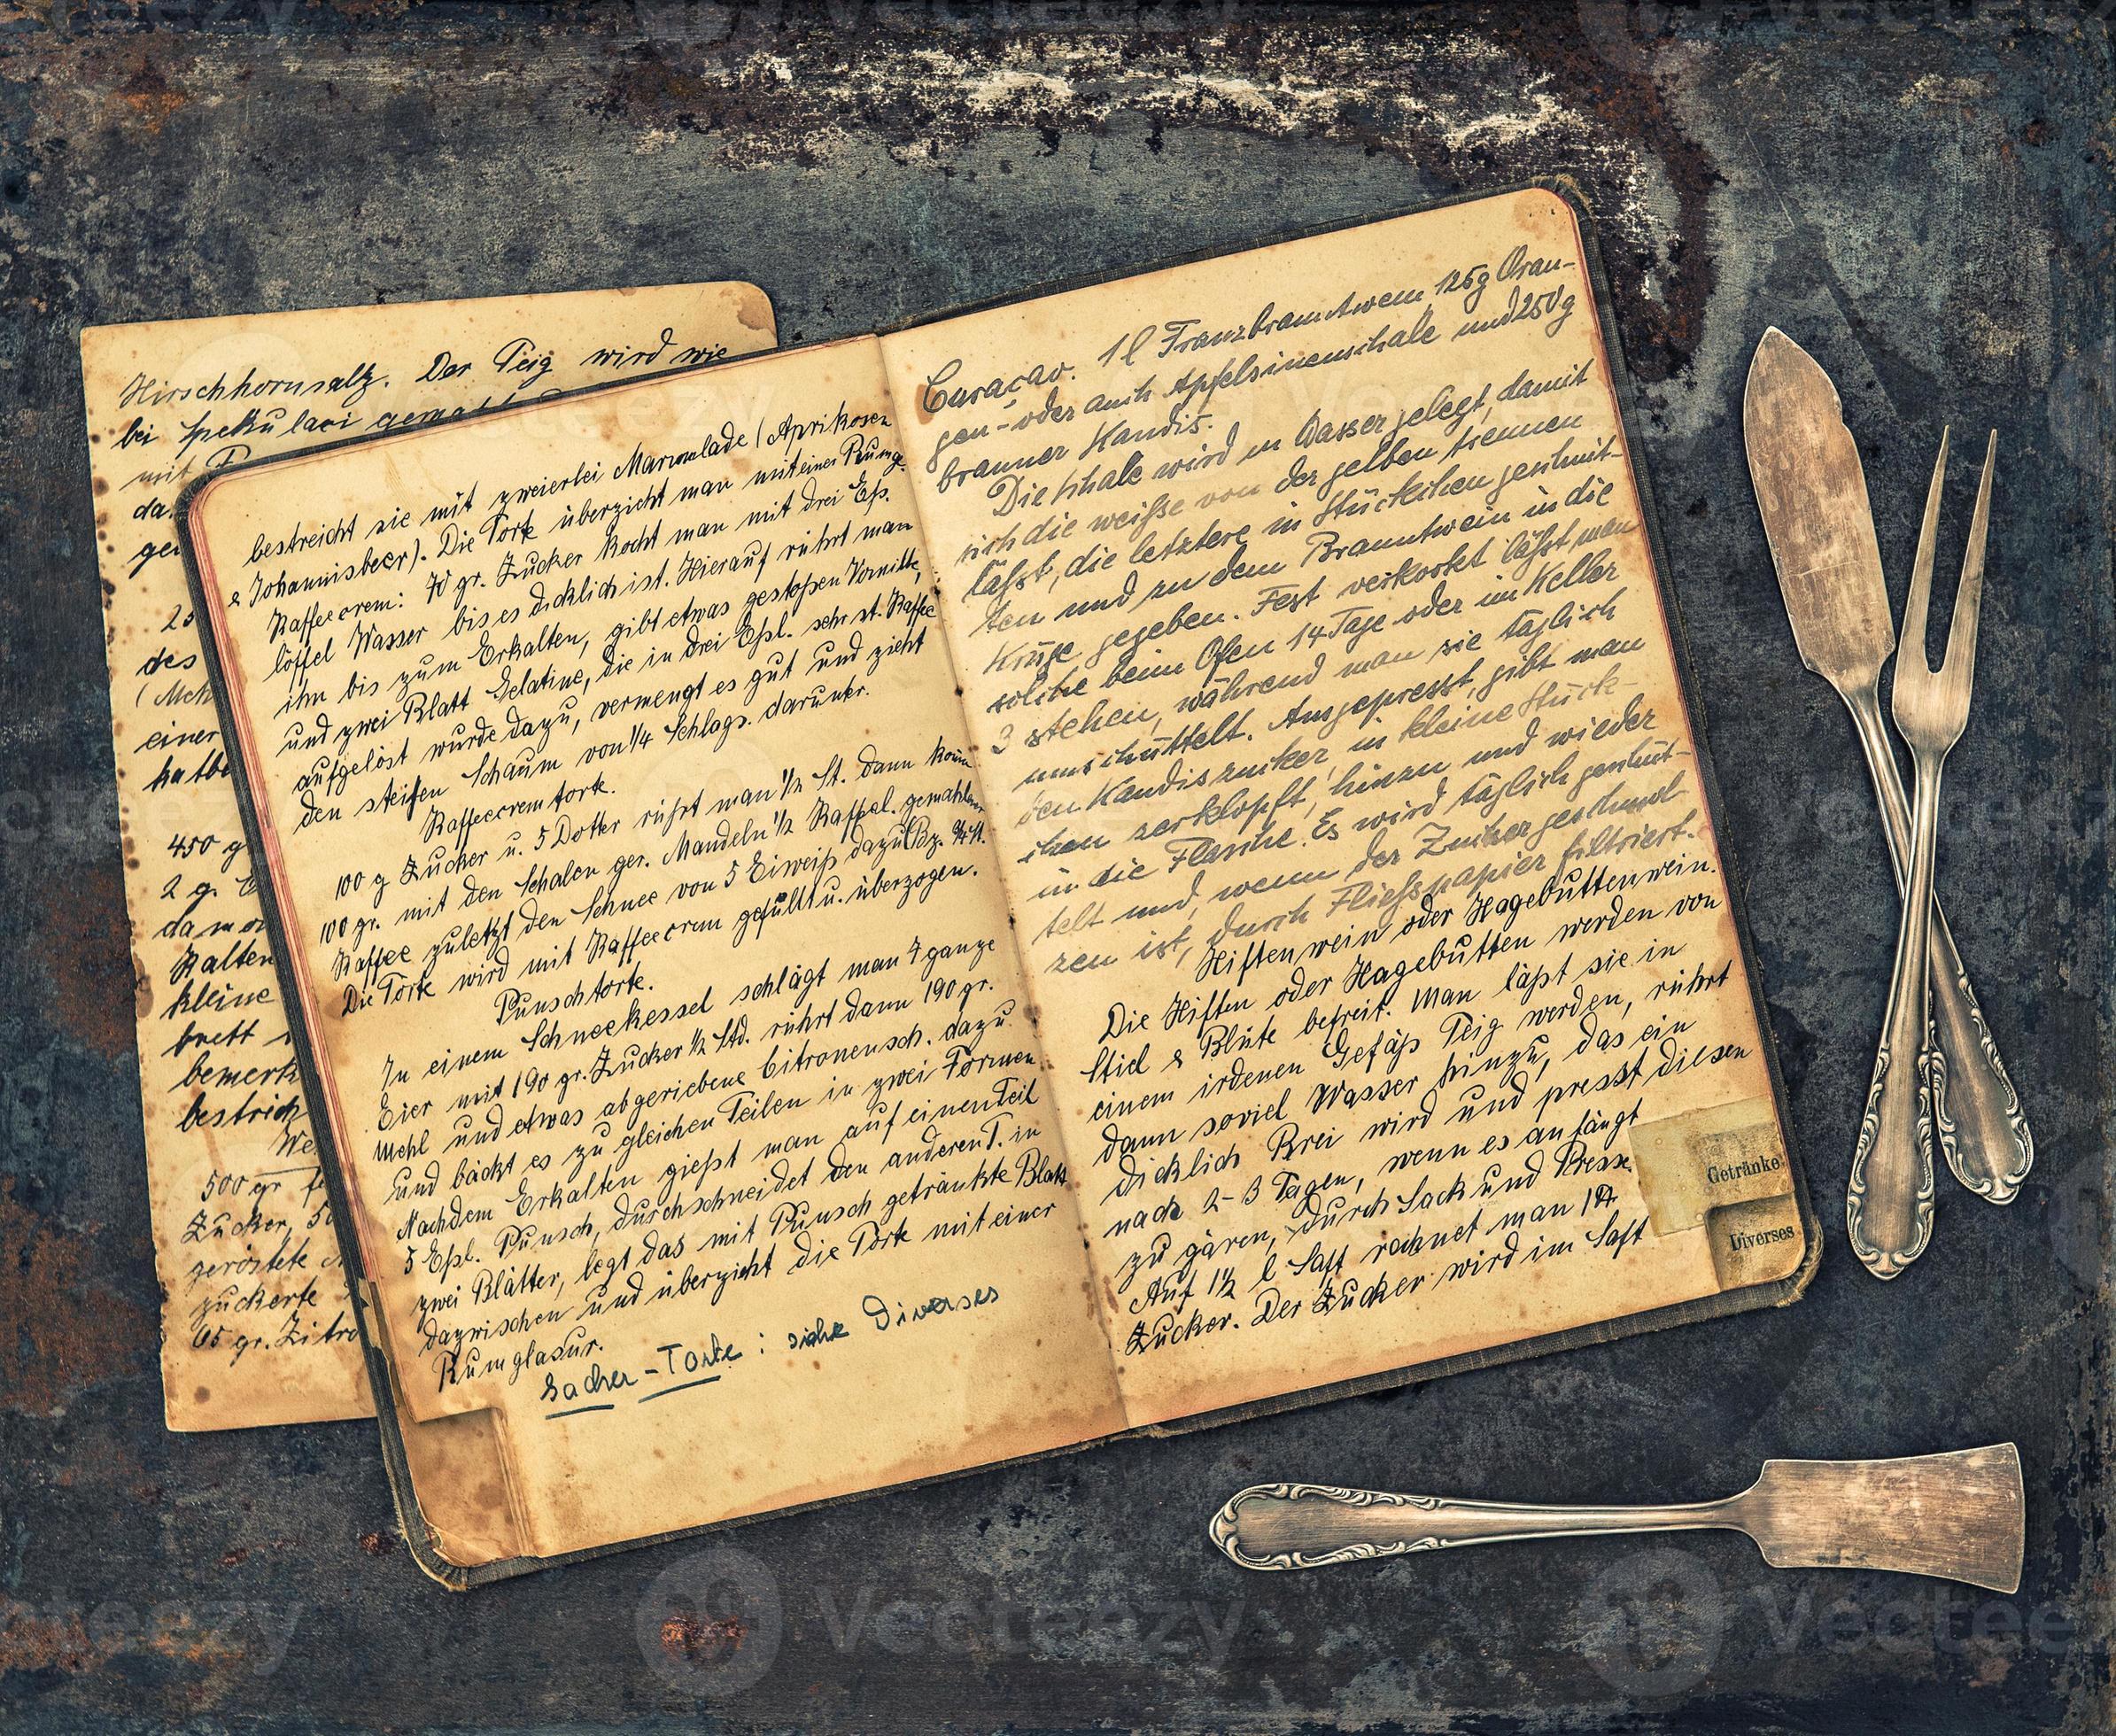 Hirschhornsalz. Der Teig wird wie
bei Spekulaci gemacht
mit
da
ger
25
des
(Meh
einer
halbe
450 g
2 g.
damor
Kalten
kleine
brett
bemerk
bestrich
We
500 gr
Zucker, 50
geröstete
zuckerte
65 gr. Zitro
bestreicht sie mit zweierlei Marmalade (Aprikosen
& Johannisbeer). Die Torte überzieht man mit einer Pung.
Kaffeecrem: 70 gr. Zucker kocht man mit drei Eß.
löffel Wasser bis es dicklich ist. Hierauf rührt man
ihn bis zum Erkalten, gibt etwas gestoßen Vanille,
und zwei Blatt Gelatine, die in drei Eßl. sehr st. Kaffee
aufgelöst wurde dazu, vermengt es gut und zieht
den steifen Schaum von 1/4 Schlags. darunter.
Kaffeecremtorte.
100 g Zucker u. 5 Dotter rührt man 1/2 St. dann kom
100 gr. mit den Schalen ger. Mandeln 1/2 Kaffel. gemahlen
Kaffee zuletzt den Schnee von 5 Eiweiß dazu (Bz. 3/4 St.
Die Torte wird mit Kaffeecrem gefüllt u. überzogen.
Punschtorte.
In einem Schneekessel schlägt man 4 ganze
Eier mit 190 gr. Zucker 1/2 Std. rührt dann 190 gr.
Mehl und etwas abgeriebene Citronensch. dazu
und bäckt es zu gleichen Teilen in zwei Formen
Nachdem Erkalten gießt man auf einen Teil
5 Eßl. Punsch, durchschneidet den anderen T. in
zwei Blätter, legt das mit Punsch getränkte Blatt
dazwischen und überzieht die Torte mit einer
Rumglasur.
Sacher-Torte: siehe Diverses
Curaçao. 1 l Franzbranntwein 125g Oran-
gen- oder auch Apfelsinenschale und 250g
brauner Kandis.
Die Schale wird in Wasser gelegt, damit
sich die weiße von der gelben trennen
läßt, die letztere in Stückchen geschnit-
ten und zu dem Branntwein in die
Krüge gegeben. Fest verkorkt läßt man
solche beim Ofen 14 Tage oder im Keller
3 stehen, während man sie täglich
umschüttelt. Ausgepresst, gibt man
den Kandiszucker, in kleine Stück-
chen zerklopft, hinzu und wieder
in die Flasche. Es wird täglich geschüt-
telt und, wenn der Zucker geschmol-
zen ist, durch Fließpapier filtriert.
Hiftenwein oder Hagebuttenwein.
Die Hiften oder Hagebutten werden von
Stiel & Blüte befreit. Man läßt sie in
einem irdenen Gefäß Teig werden, rührt
dann soviel Wasser hinzu, das ein
dicklich Brei wird und presst diesen
nach 2-3 Tagen, wenn es anfängt
zu gären, durch Sack und Presse.
Auf 1 1/2 l Saft rechnet man 1 ℔
Zucker. Der Zucker wird im Saft
Getränke
Diverses
Vecteezy